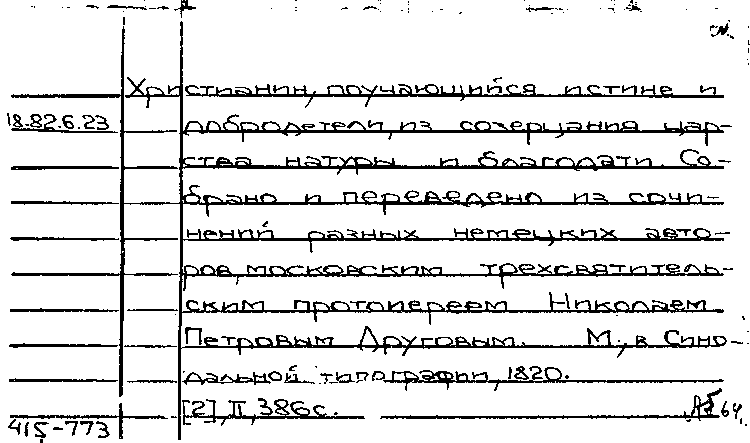 Христианин, поучающийся истине и
18.82.6.23
добродетели, из созерцания цар-
ства натуры и благодати. Со-
брано и переведено из сочи-
нений разных немецких авто-
ров, московским трехсвятитель-
ским протоиереем Николаем
Петровым Друговым. М., в Сино-
дальной типографии, 1820.
[2], II, 386 с.
415-773